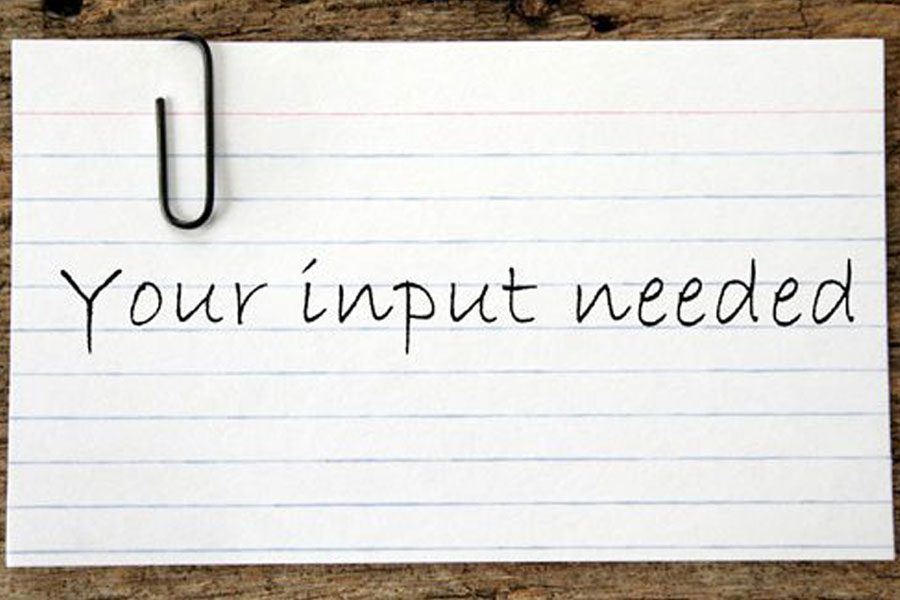 Your input needed